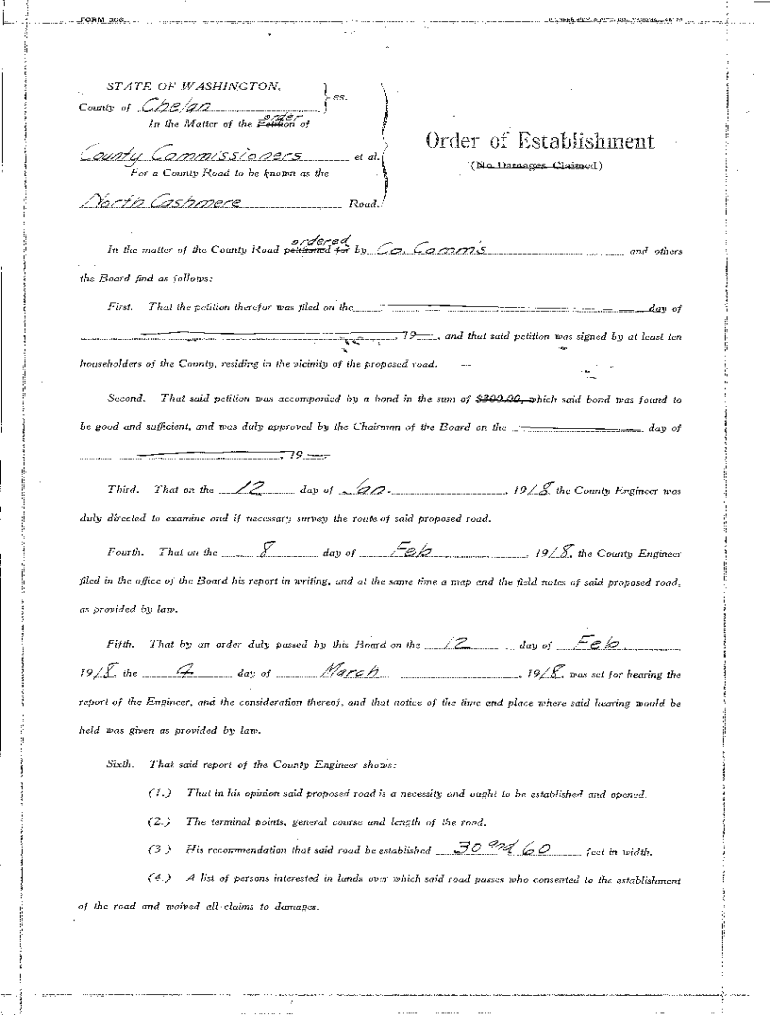 FORM 306
STATE OF WASHINGTON,
County of Chelan ss.
order
In the Matter of the Petition of
County Commissioners et al.
For a County Road to be known as the
North Cashmere Road.
Order of Establishment
(No Damages Claimed)
ordered
In the matter of the County Road petitioned for by Co. Comm's and others
the Board find as follows:
First. That the petition therefor was filed on the day of
, 19 , and that said petition was signed by at least ten
householders of the County, residing in the vicinity of the proposed road.
Second. That said petition was accompanied by a bond in the sum of $300.00, which said bond was found to
be good and sufficient, and was duly approved by the Chairman of the Board on the day of
, 19
Third. That on the 12 day of Jan. , 1918 the County Engineer was
duly directed to examine and if necessary survey the route of said proposed road.
Fourth. That on the 8 day of Feb , 1918, the County Engineer
filed in the office of the Board his report in writing, and at the same time a map and the field notes of said proposed road,
as provided by law.
Fifth. That by an order duly passed by this Board on the 12 day of Feb.
1918, the 4 day of March , 1918, was set for hearing the
report of the Engineer, and the consideration thereof, and that notice of the time and place where said hearing would be
held was given as provided by law.
Sixth. That said report of the County Engineer shows:
(1.) That in his opinion said proposed road is a necessity and ought to be established and opened.
(2.) The terminal points, general course and length of the road.
(3.) His recommendation that said road be established 30 and 60 feet in width.
(4.) A list of persons interested in lands over which said road passes who consented to the establishment
of the road and waived all claims to damages.